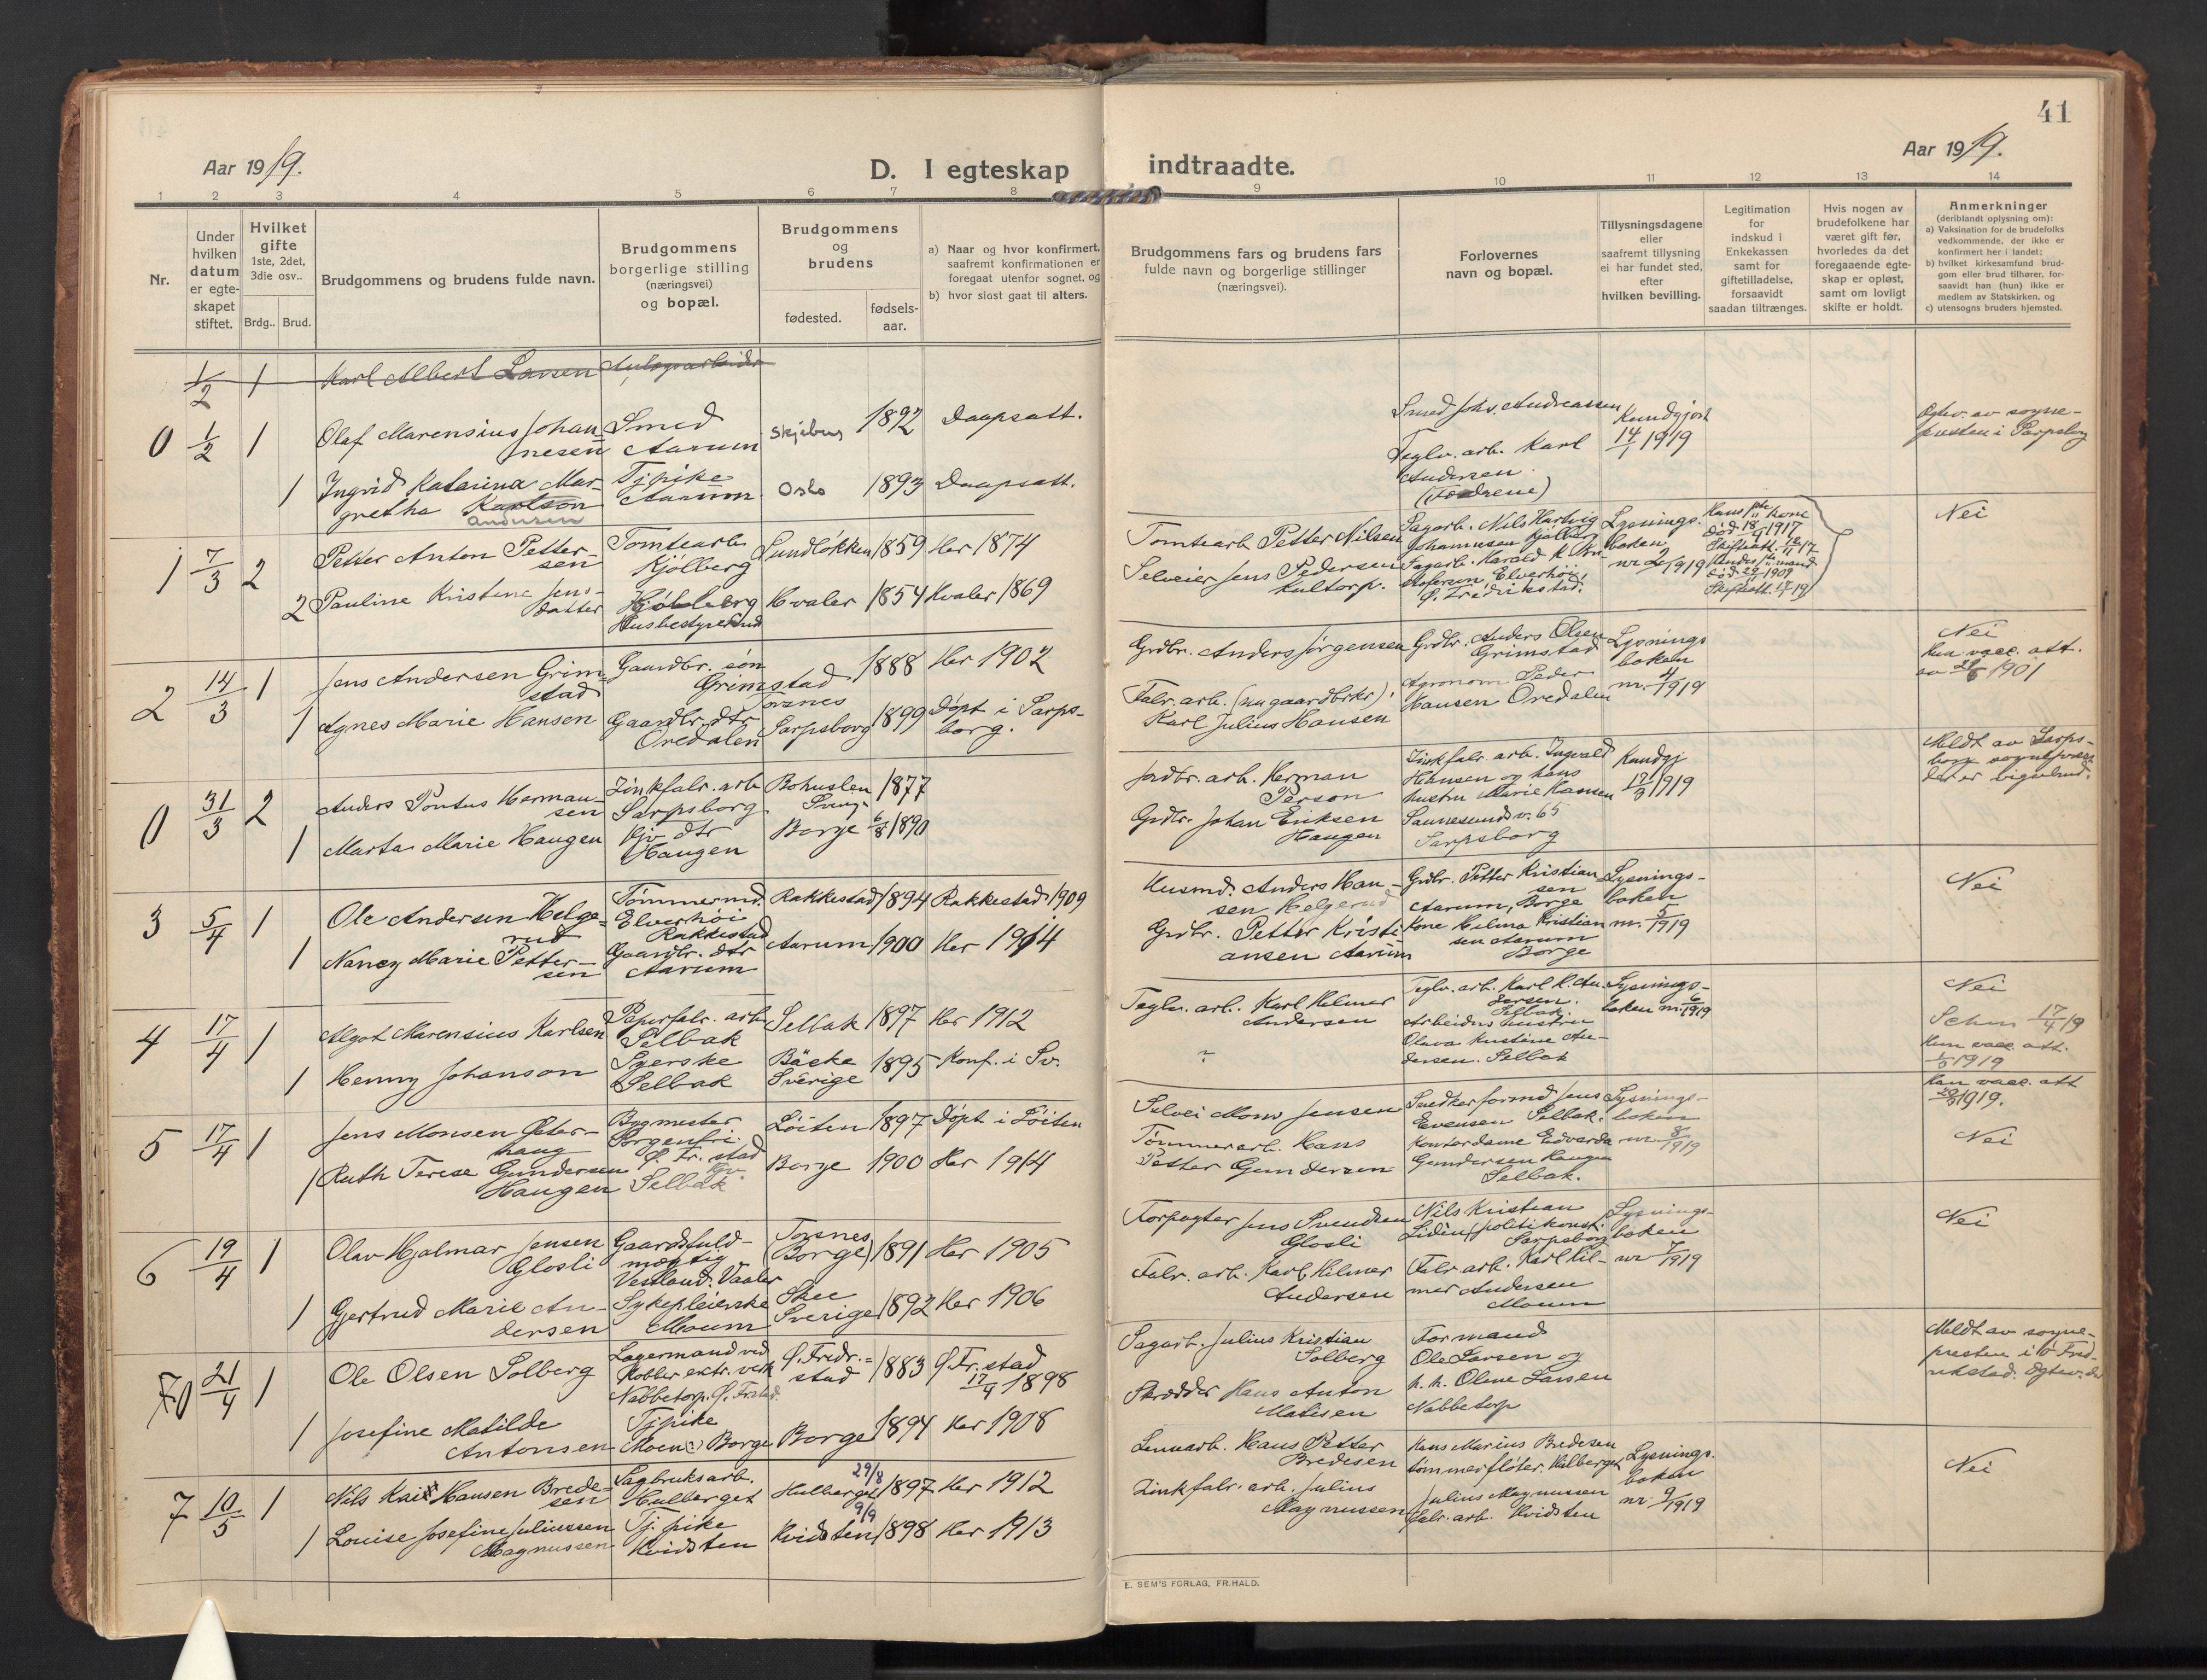 41
Aar 1919.
D. I egteskap
indtraadte.
Aar 1919.
1 2 3 4 5 6 7 8 9 10 11 12 13 14
Nr.
Under
hvilken
datum
er egte-
skapet
stiftet.
Hvilket
gifte
1ste, 2det,
3die osv..
Brdg..
Brud.
Brudgommens og brudens fulde navn.
Brudgommens
borgerlige stilling
(næringsvei)
og bopæl.
Brudgommens
og
brudens
fødested.
fødsels-
aar.
a) Naar og hvor konfirmert,
saafremt konfirmationen er
foregaat utenfor sognet, og
b) hvor sidst gaat til alters.
Brudgommens fars og brudens fars
fulde navn og borgerlige stillinger
(næringsvei).
Forlovernes
navn og bopæl.
Tillysningsdagene
eller
saafremt tillysning
ei har fundet sted,
efter
hvilken bevilling.
Legitimation
for
indskud i
Enkekassen
samt for
giftetilladelse,
forsaavidt
saadan tiltrænges.
Hvis nogen av
brudefolkene har
været gift før,
hvorledes da det
foregaaende egte-
skap er opløst,
samt om lovligt
skifte er holdt.
Anmerkninger
(deriblandt oplysning om):
a) Vaksination for de brudefolks
vedkommende, der ikke er
konfirmert her i landet;
b) hvilket kirkesamfund brud-
gom eller brud tilhører, for-
saavidt han (hun) ikke er
medlem av Statskirken, og
c) utensogns bruders hjemsted.
1/2 1 Karl Albert Larsen
0 1/2 1 Olaf Marensius Johan-
nesen
Smed
Aarum
Skjeberg 1892 Daapsatt.
Smed Johs. Andreassen
Teglv. arb. Karl
Andersen
Kundgjort
14/1 1919
1 Ingrid Katarina Mar-
gretha Karlson
Andersen
Tjpike
Aarum
Oslo 1893 Daapsatt.
1 7/3 2 Petter Anton Petter-
sen
Tomtearb.
Kjölberg
Sundløkken 1859 Her 1874
Tomtearb. Petter Nilsen
Sagarb. Nils Hartvig
Johannesen Kjølberg
Lysnings-
boken
nr. 2/1919
Hans 1ste kone
død 18/9 1917
Nei
2 Pauline Kristine Jens-
datter
Kjølberg
Husbestyrerind
Hvaler 1854 Hvaler 1869
Selveier Jens Pedersen
Sagarb. Harald K. Kri-
stofersen, Elverhöi,
Ø. Fredrikstad.
2 14/3 1 Jens Andersen Grim-
stad
Gaardbr. søn
Grimstad
1888 Her 1902
Grdbr. Anders Jørgensen
Grdbr. Anders Olsen
Grimstad
Lysnings
boken
nr. 4/1919
Nei
Hun vacc. att.
1 Agnes Marie Hansen
Gaardbr. dtr
Oredalen
Sarpsborg 1899 Døpt i Sarps-
borg.
Fabr. arb. (nu gaardbrkr)
Karl Julius Hansen
Agronom Peder
Hansen Oredalen
0 31/3 2 Anders Pontus Herman-
sen
Zinkfabr. arb
Sarpsborg
Bohuslen 1877
Jordbr. arb. Herman
Person
Zinkfabr. arb. Ingvald
Hansen og hans
hustru Marie Hansen
Sannesundsv. 65
Sarpsborg
Kundgj
17/3 1919
Meldt av Sarps-
borg
1 Marta Marie Haugen
Gjv. dtr
Haugen
Borge 6/8 1890
Grdbr. Johan Eriksen
Haugen
3 5/4 1 Ole Andersen Helge-
rud
Tømmermd.
Elverhöi
Rakkestad
Rakkestad 1894 Rakkestad 1909
Husmd. Anders Han-
sen Helgerud
Grdbr. Petter Kristian-
sen
Aarum, Borge
Lysnings-
boken
nr. 5/1919
Nei
1 Nancy Marie Petter-
sen
Gaardbr. dtr
Aarum
Aarum 1900 Her 1914
Grdbr. Petter Kristi-
ansen Aarum
Kone Hilma Kristian
sen Aarum
Borge
4 17/4 1 Algot Marensius Karlsen
Papirfabr. arb
Selbak
Selbak 1897 Her 1912
Teglv. arb. Karl Hilmer
Andersen
Teglv. arb. Karl H. An-
dersen
Selbak.
Lysnings-
boken nr. 6/1919
Nei
1 Henny Johanson
Syerske
Selbak
Bäcke
Sverige 1895 Konf. i Sv.
?
Arbeiders hustru
Olava Kristine An-
dersen. Selbak
Hun vacc. att.
5 17/4 1 Jens Monsen Øster-
haug
Bygmester
Sorgenfri
Ø. Fr. stad
Löiten 1897 Døpt i Löiten
Selvei Mons Jensen
Snedkerformd Jens
Evensen Selbak.
Lysnings-
boken
nr. 8/1919
Han vacc. att
Nei
1 Ruth Terese Gundersen
Haugen
Selbak
Borge 1900 Her 1914
Tømmerarb. Hans
Petter Gundersen
Kontordame Edvarda
Gundersen Haugen
Selbak.
6 19/4 1 Olav Hjalmar Jensen
Glosli
Gaardsfuld-
mægtig
Vestland. Vaaler
Torsnes
(Borge) 1891 Her 1905
Forpagter Jens Svendsen
Glosli
Nils Kristian
Liden, politikonst.
Sarpsborg
Lysnings-
boken
nr 7/1919
Nei
1 Gjertrud Marie An-
dersen
Sykepleierske
Moum
Skee
Sverige 1892 Her 1906
Fabr. arb. Karl Hilmer
Andersen
Fabr. arb. Karl Hil-
mer Andersen
Moum
0 21/4 1 Ole Olsen Solberg
Lagermand ved
Kobber extr. verk
Nabbetorp. Ø. Frstad.
Ø. Fredr.-
stad 1883 Ø. Fr. stad
17/9 1898
Sagarb. Julius Kristian
Solberg
Formand
Ole Larsen og
h. h. Oline Larsen
Nabbetorp
Meldt av sogne-
presten i Ø. Fred-
rikstad.
1 Josefine Matilde
Antonsen
Tjpike
Moen (:) Borge
Borge 1894 Her 1908
Skrædder Hans Anton
Matisen
7 10/5 1 Nils Kai Hansen Brede-
sen
Sagbruksarb.
Hulberget
Hulberget 29/8 1897 Her 1912
Hans Petter
Bredesen
Hans Marius Bredesen
tømmerfløter. Hulberget
Lysnings-
boken
nr. 9/1919
Nei
1 Louise Josefine Juliussen
Magnussen
Tj. pike
Kvidsten
Kvidsten 9/9 1898 Her 1913
Zinkfabr. arb. Julius
Magnussen
Julius Magnussen
fabr. arb. Kvidsten
E. SEM'S FORLAG, FR.HALD.